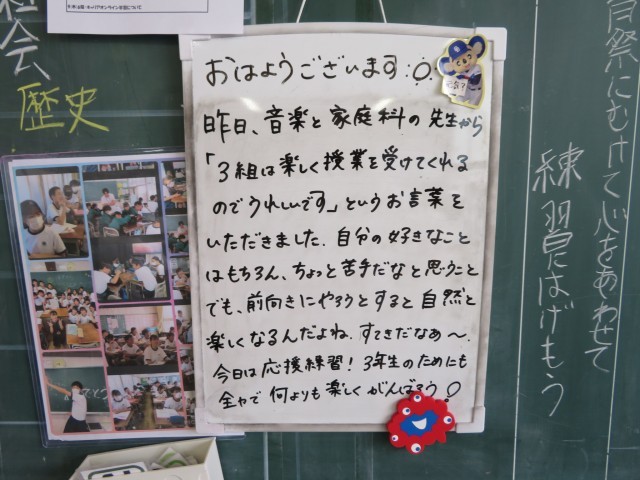 社会
歴史
おはようございます!
昨日、音楽と家庭科の先生から
「3組は楽しく授業を受けてくれる
のでうれしいです」というお言葉を
いただきました。自分の好きなこと
はもちろん、ちょっと苦手だなと思うこと
でも、前向きにやろうとすると自然と
楽しくなるんだよね。すてきだなぁ〜。
今日は応援練習!3年生のためにも
全力で何よりも楽しくがんばろう!
祭にむけて心をあわせて
練習にはげもう